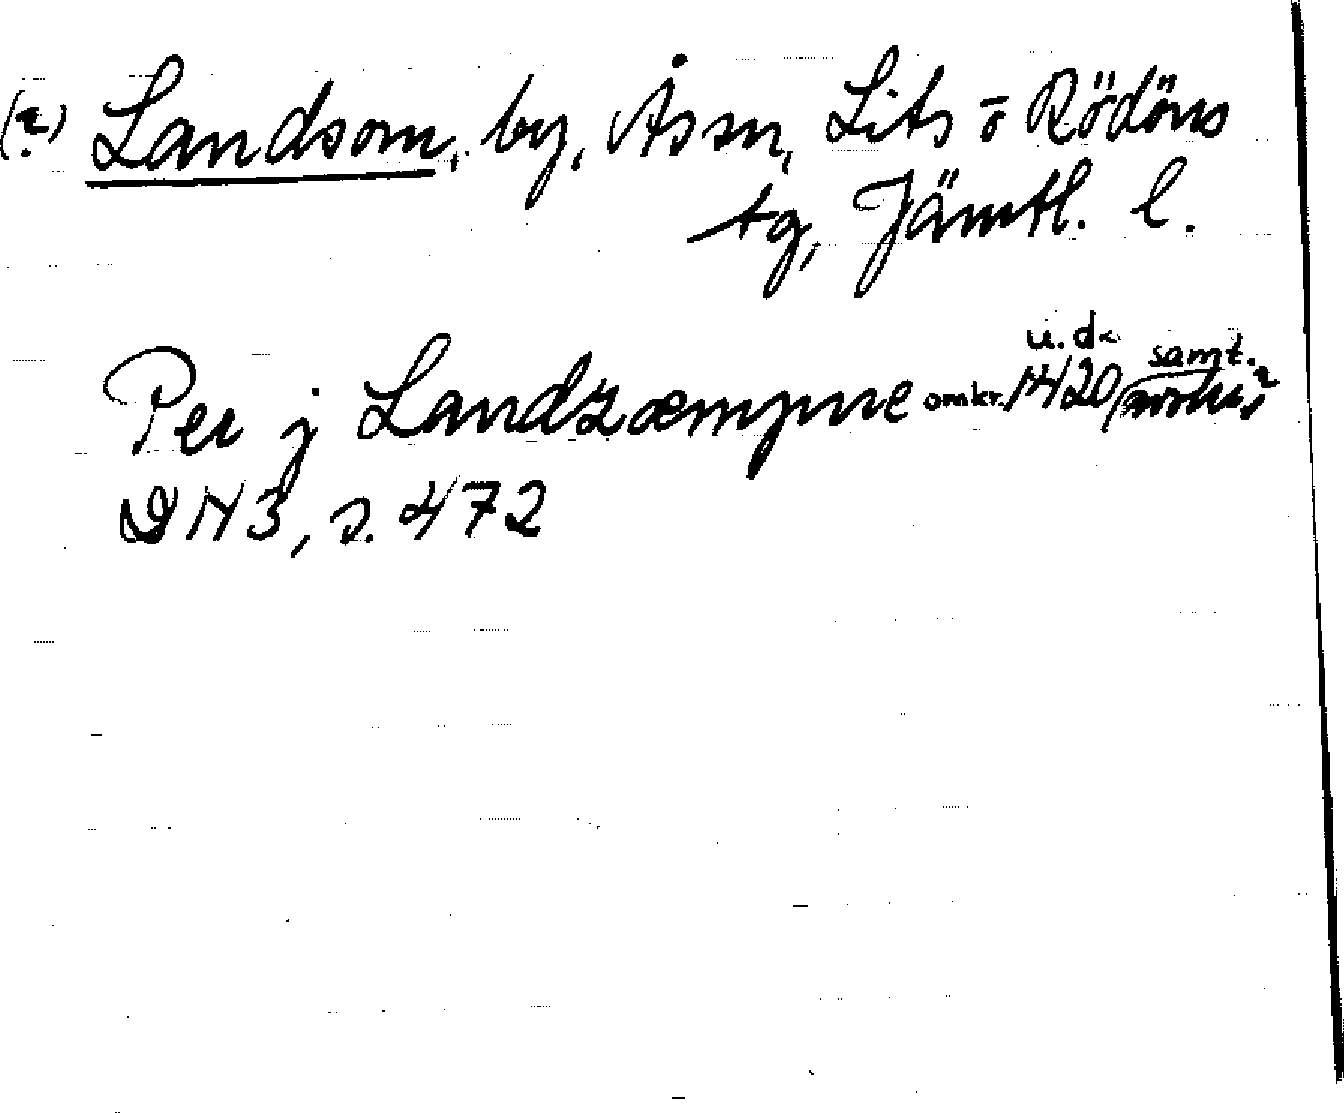 (?) Landsom, by, Ås sn, Lits o Rödöns
tg, Jämtl. l.
Per j Landzæmpne omkr. 1420 u.d. samt.
DN 3, s. 472